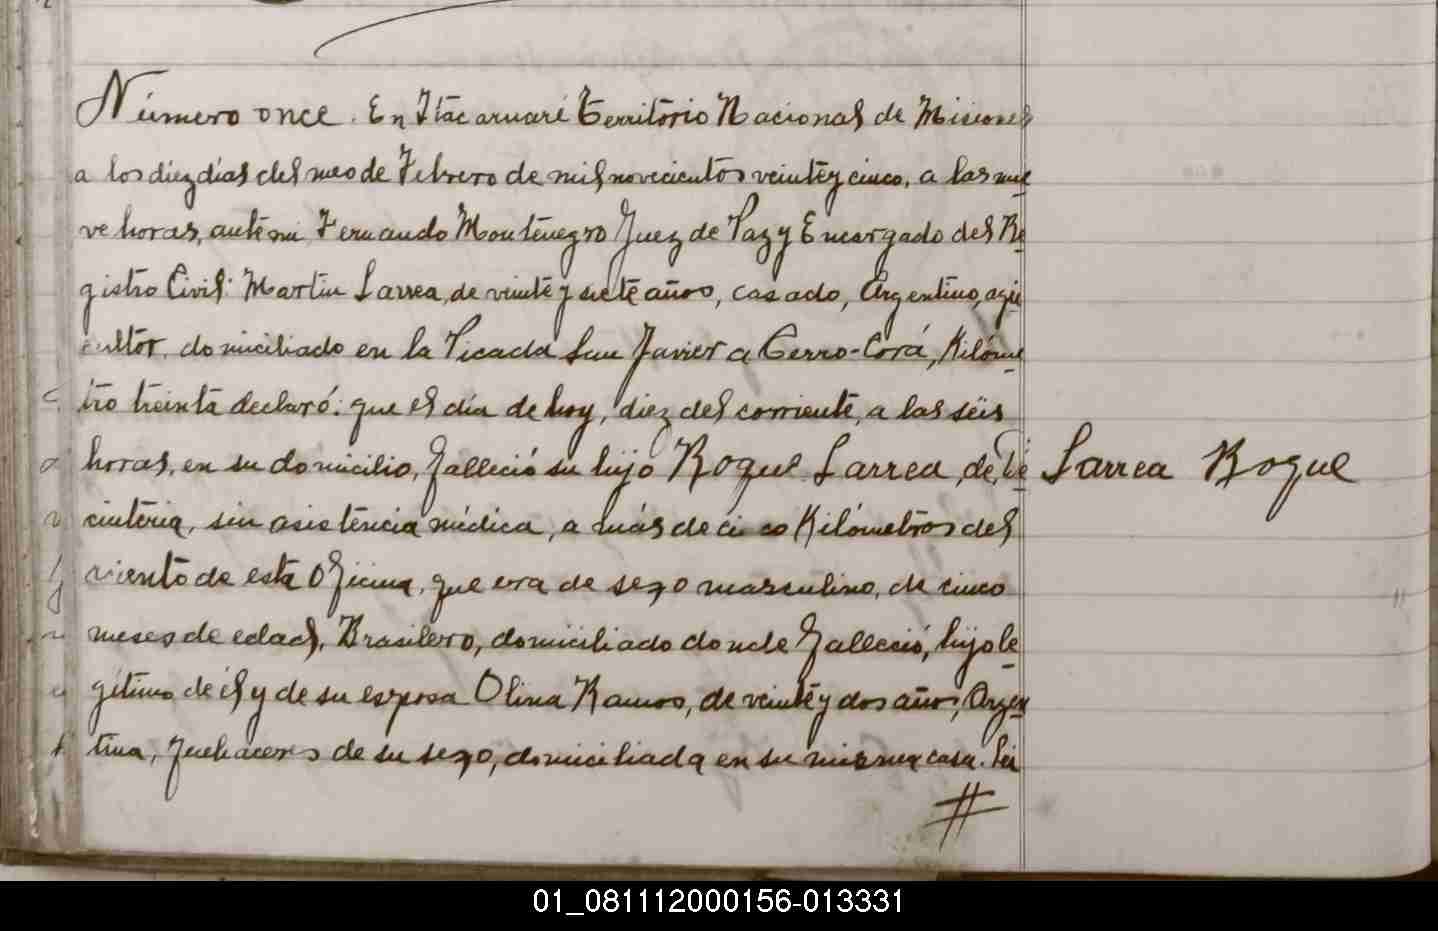 Número once. En Itacaruaré Territorio Nacional de Misiones
a los diez días del mes de Febrero de mil novecientos veinte y cinco, a las nue
ve horas, ante mi Fernando Montenegro Juez de Paz y Encargado del Re
gistro Civil: Martin Larrea, de veinte y siete años, casado, Argentino, agri
cultor, domiciliado en la Picada San Javier a Cerro-Corá, Kilóme
tro treinta declaró: que el día de hoy, diez del corriente, a las séis
horas, en su domicilio, falleció su hijo Roque Larrea, de, Di Larrea Roque
cinteria, sin asistencia médica, a más de cinco Kilómetros del
asiento de esta Oficina, que era de sexo masculino, de cinco
meses de edad, Brasilero, domiciliado donde falleció, hijo le
gítimo de él y de su esposa Olina Ramos, de veinte y dos años, Argen
tina, quehaceres de su sexo, domiciliada en su misma casa. Lei
#
01_081112000156-013331